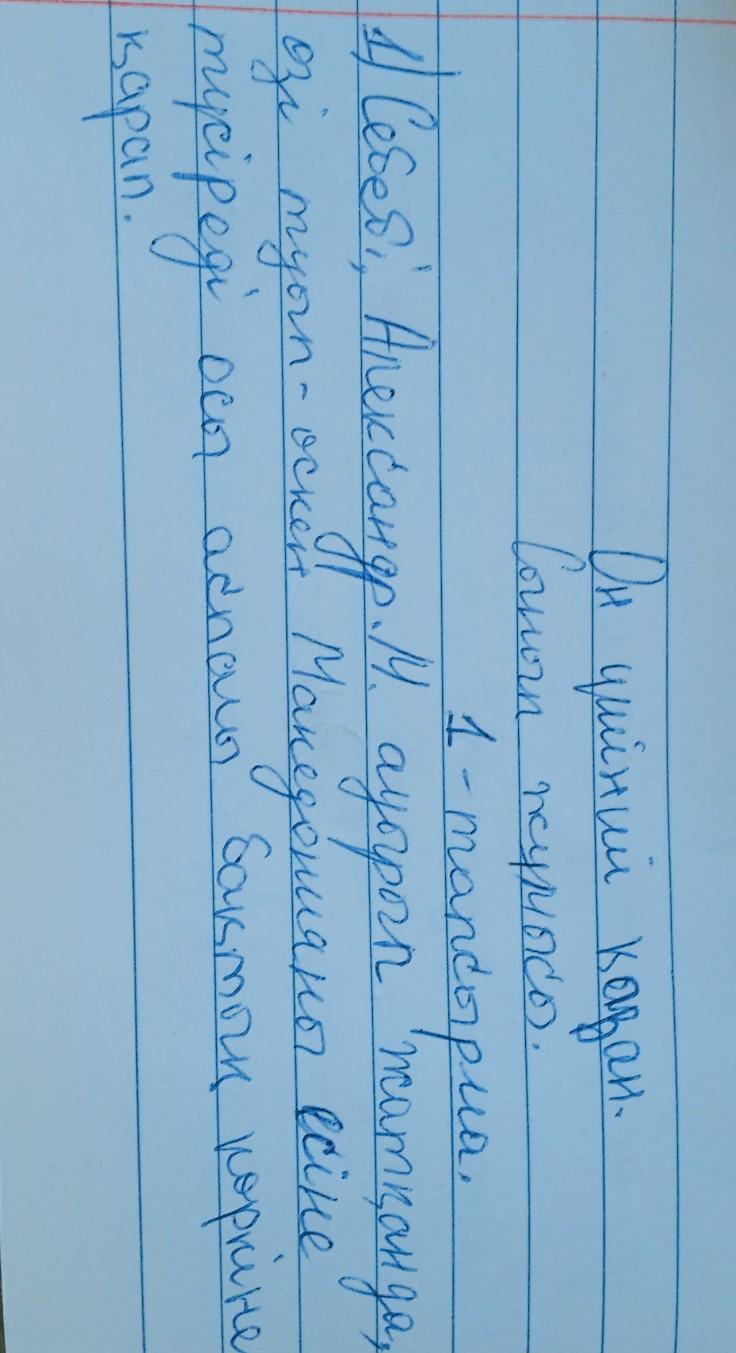 Он үшінші қазан.
Сынып жұмысы.
1-тапсырма.
1) Себебі, Александр.М. ауырып жатқанда,
өзі туып-өскен Македонияны есіне
түсіреді осы аспалы бақтың көркіне
қарап.